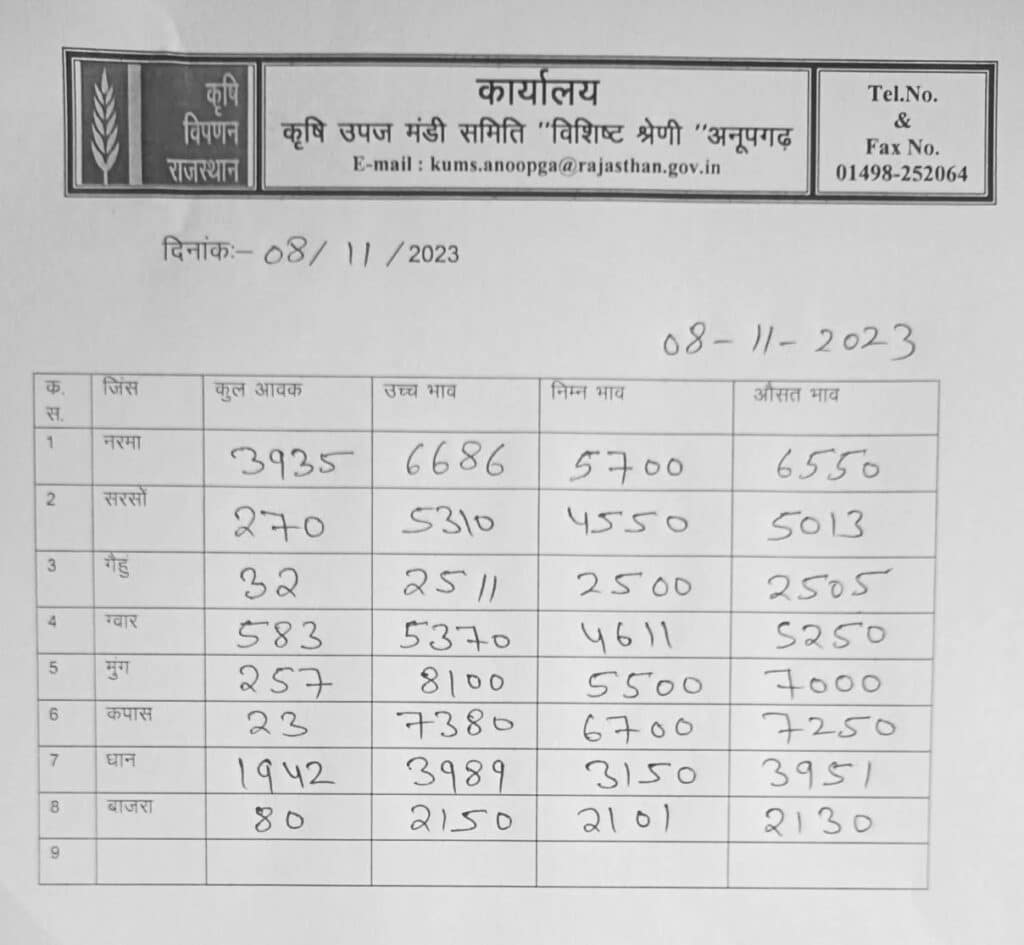 कृषि
विपणन
राजस्थान
कार्यालय
कृषि उपज मंडी समिति "विशिष्ट श्रेणी "अनूपगढ़
E-mail : kums.anoopga@rajasthan.gov.in
Tel.No.
&
Fax No.
01498-252064
दिनांकः– 08/ 11 /2023
08-11-2023
क. स. जिंस कुल आवक उच्च भाव निम्न भाव औसत भाव
1 नरमा 3935 6686 5700 6550
2 सरसों 270 5310 4550 5013
3 गैहुं 32 2511 2500 2505
4 ग्वार 583 5370 4611 5250
5 मुंग 257 8100 5500 7000
6 कपास 23 7380 6700 7250
7 धान 1942 3989 3150 3951
8 बाजरा 80 2150 2101 2130
9